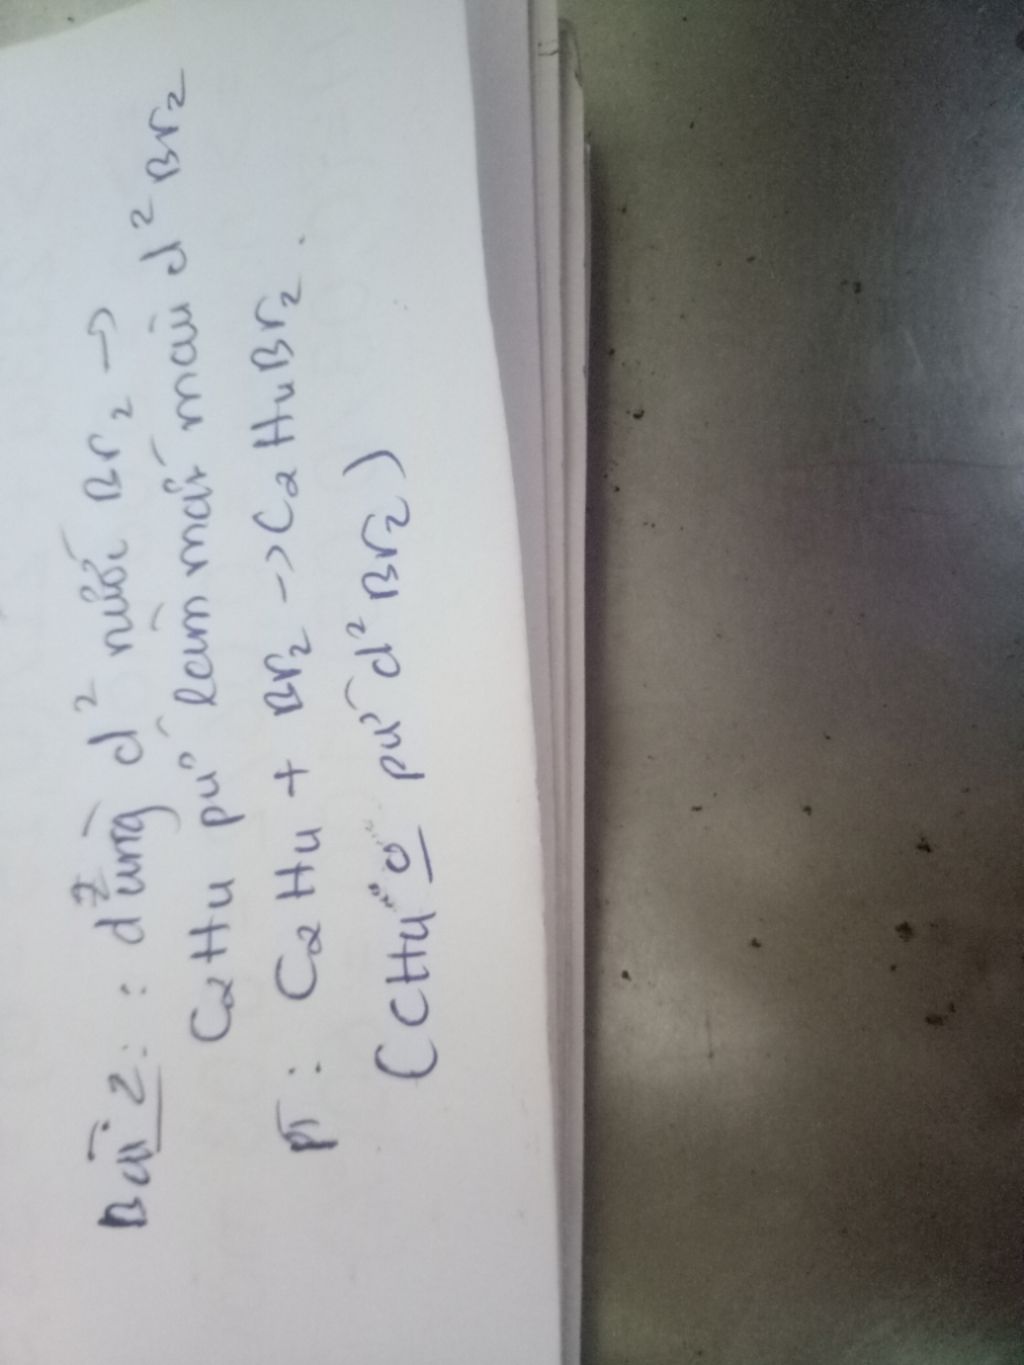 Bài 2: : dùng d² nước Br₂ →
C₂H₄ pư làm mất màu d² Br₂
PT : C₂H₄ + Br₂ → C₂H₄Br₂.
(CH₄ ko pư d² Br₂)